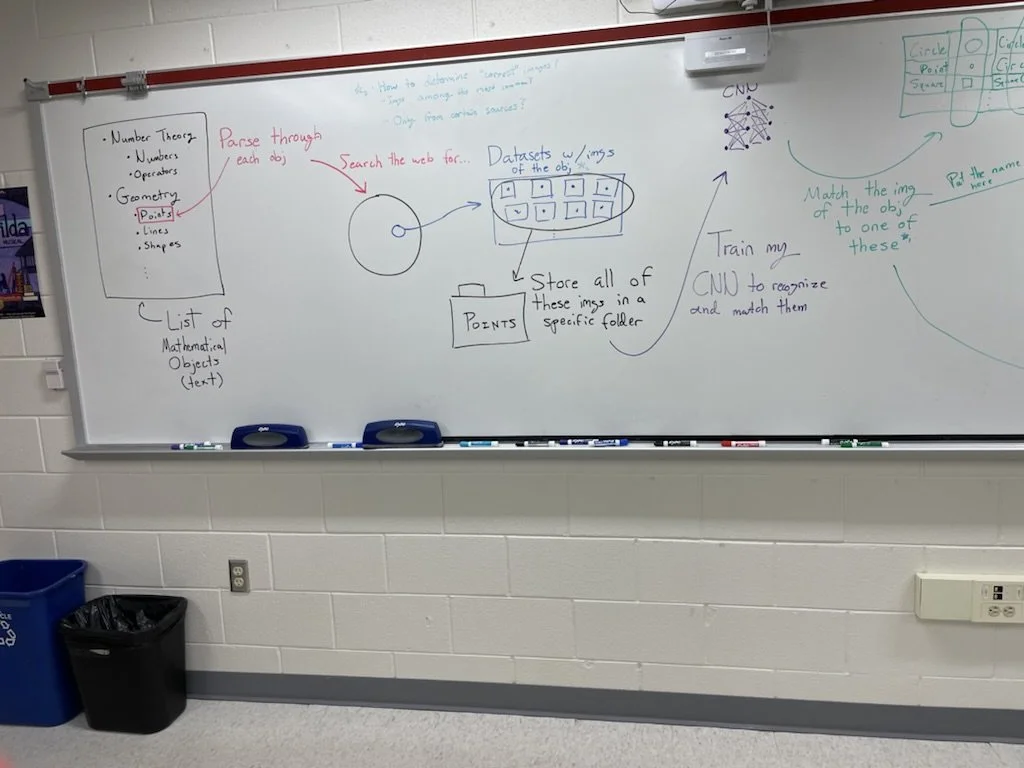 • Number Theory
• Numbers
• Operators
• Geometry
• Points
• Lines
• Shapes
List of
Mathematical
Objects
(text)
Parse through
each obj
Search the web for...
How to determine "correct" images?
- imgs among the most common
- Only from certain sources?
Datasets w/imgs
of the obj
POINTS
Store all of
these imgs in a
specific folder
CNN
Train my
CNN to recognize
and match them
Match the img
of the obj
to one of
these*
Put the name
here
Circle
Point
Square
ilda
MUSICAL